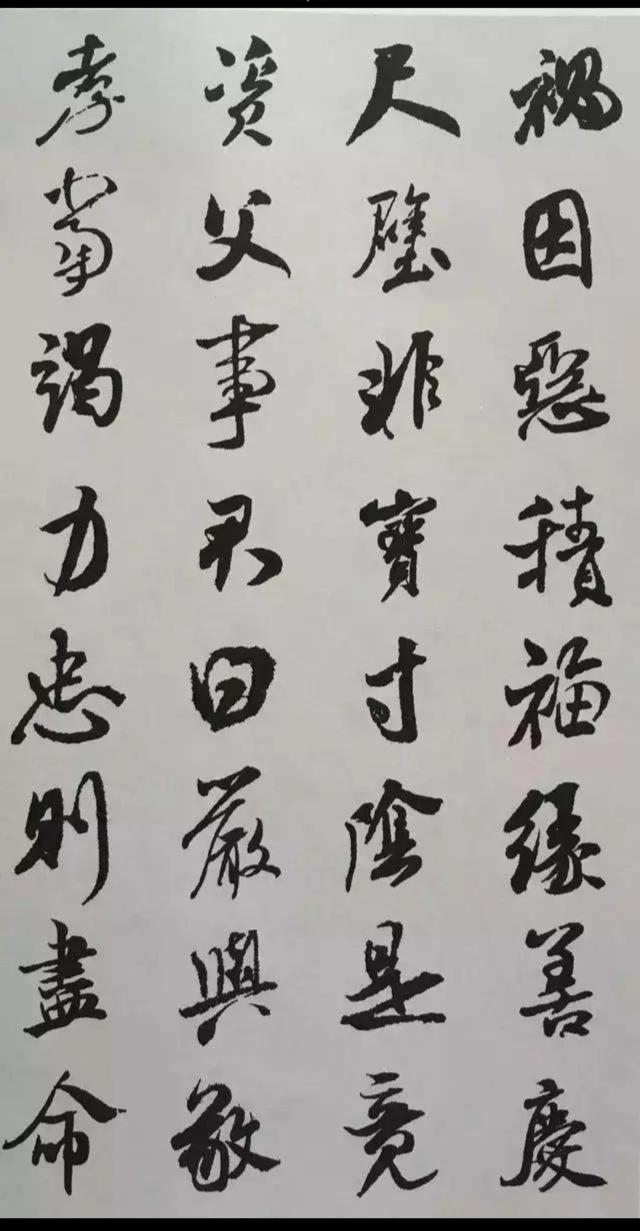 禍因惡積福緣善慶
尺璧非寶寸陰是竟
資父事君曰嚴與敬
孝當竭力忠則盡命